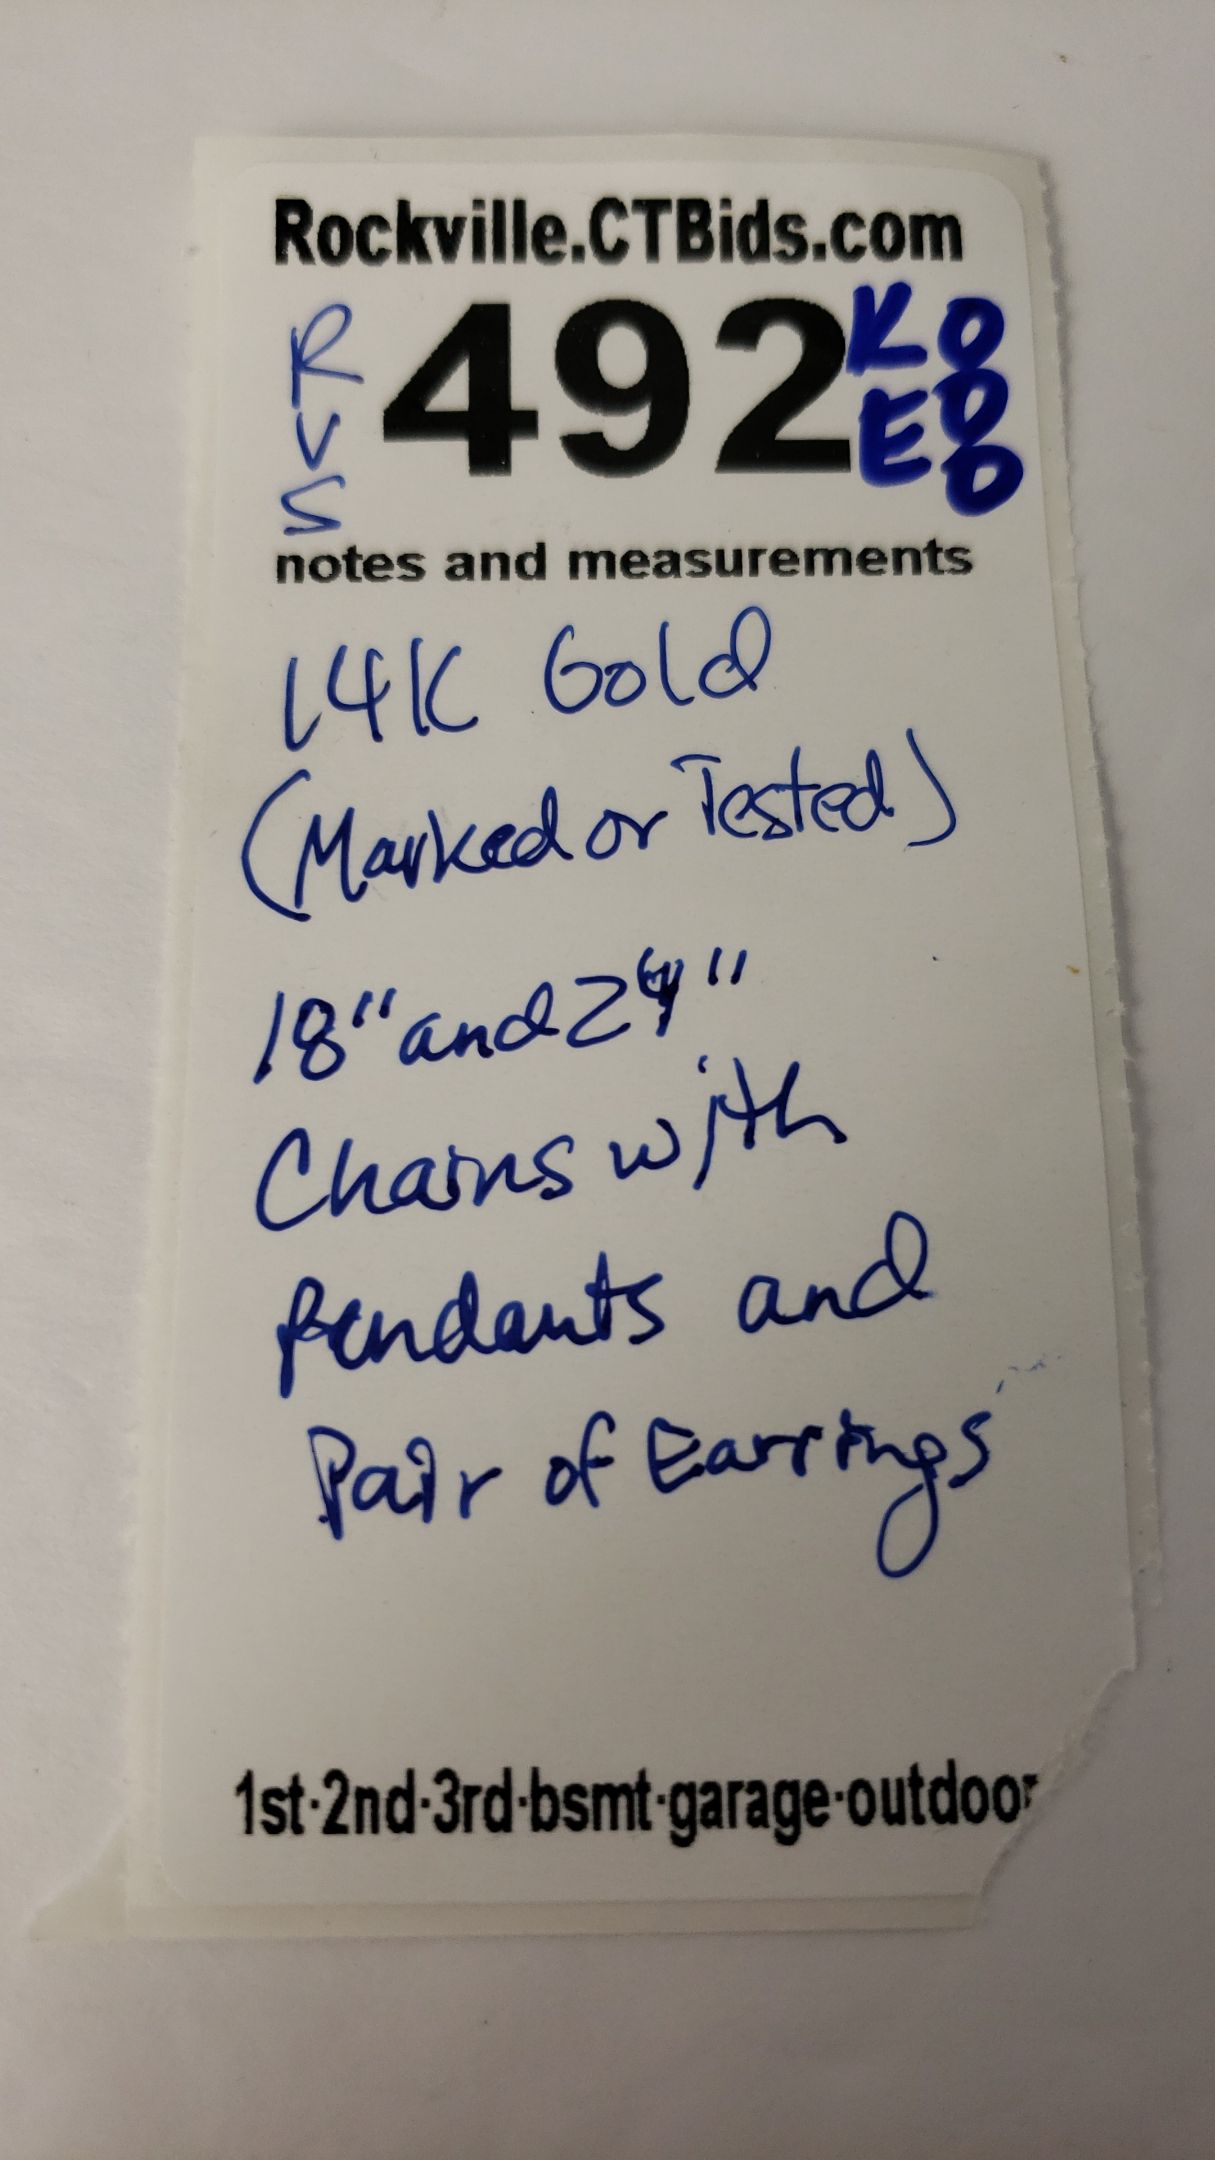 Rockville.CTBids.com
RVS
492
KO
EO
O
notes and measurements
14K Gold
(Marked or Tested)
18" and 24"
Chains with
Pendants and
Pair of Earrings
1st·2nd·3rd·bsmt·garage·outdoor